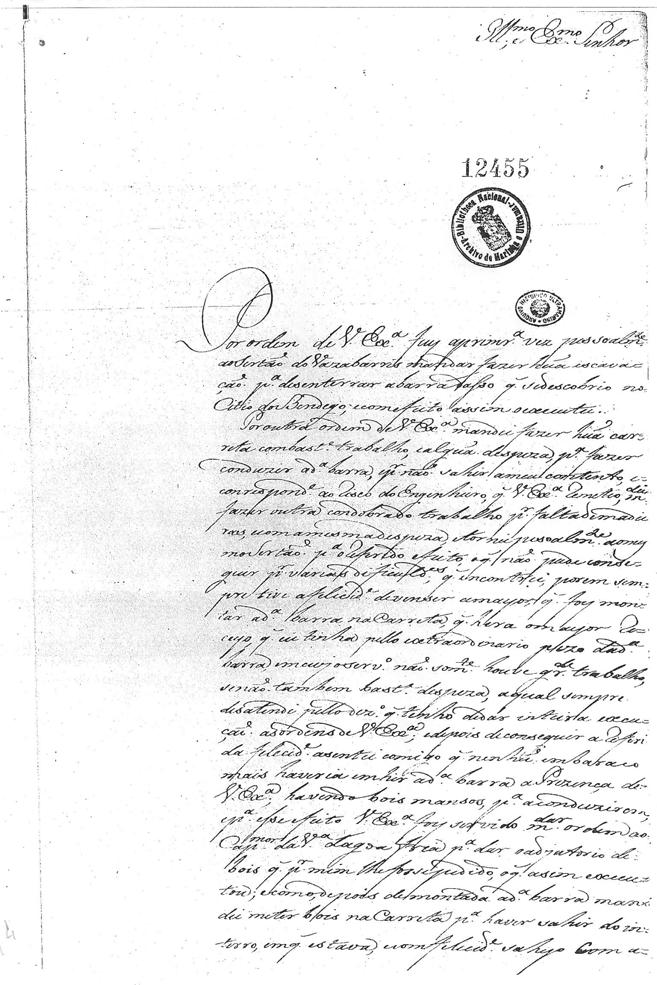 Ill.mo e Ex.mo Senhor
12455
Bibliotheca Nacional
Archivo de Marinha e Ultramar
Por ordem de V. Ex.ª fuy a primr.ª vez pessoalm.te
ao Sertaõ do Vazabarris mandar fazer huã escava-
çaõ p.ª desenterrar a barra q̃ se descobrio no
Citio do Bendego, e com effeito assim o executei.
Por outra ordem de V. Ex.ª mandei fazer huã car-
reta com bast.e trabalho, e algua despeza, p.ª fazer
conduzir a d.ª barra, e p.r naõ sahir a meu contento, e
correspond.e ao risco do Engenheiro, q̃ V. Ex.ª
fazer outra com dobrado trabalho p.r falta de madei-
ras, e com a mesma despeza, e tornei pessoalm.te ao mes-
mo Sertaõ p.ª o referido effeito, o q̃ naõ pude conse-
guir p.r varias dificuld.es q̃ encontrei, porem sem-
pre tive a felicid.e de vencer a mayor, q̃ foy mon-
tar a d.ª barra na Carreta, q̃ hera o mayor re-
ceyo, q̃ eu tinha pello extraordinario pezo da d.ª
barra, em cujo serv.º naõ som.te houve gr.de trabalho,
senaõ tambem bast.e despeza, a qual sempre
desatendi pello dez.º q̃ tenho de dar inteira execu-
çaõ as ordens de V. Ex.ª; e depois de conseguir a referi-
da felicid.e asentei comigo q̃ nenhũ embaraço
mais haveria em hir a d.ª barra a Prezença de
V. Ex.ª havendo bois mansos, p.ª a conduzirem,
e p.ª esse effeito V. Ex.ª foy servido m.dar ordem ao
Cap.mor da V.ª Lagoa freia p.ª dar o adjutorio de
bois q̃ p.r mim lhe fosse pedido, o q̃ assim execu-
tou; e como, depois de montada a d.ª barra man-
dei meter bois na Carreta p.ª haver sahir do in-
terro, em q̃ estava, e com felicid.e sahyo com a-